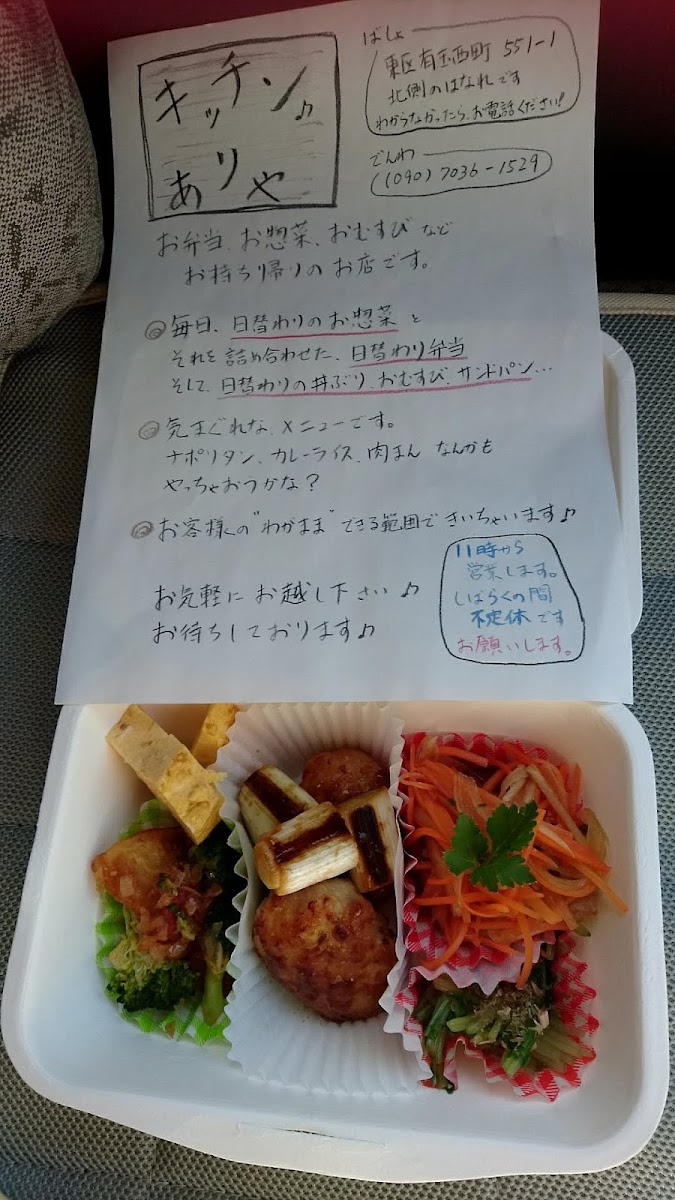 キッチン♪
ありや
ばしょ
東区有玉西町 551-1
北側のはなれです
わからなかったら、お電話ください!
でんわ
(090) 7036-1529
お弁当、お惣菜、おむすび など
お持ち帰りのお店です。
◎毎日、日替わりのお惣菜 と
それを詰め合わせた、日替わり弁当
そして、日替わりの丼ぶり、おむすび、サンドパン…
◎気まぐれな、メニューです。
ナポリタン、カレーライス、肉まん なんかも
やっちゃおうかな?
◎お客様の"わがまま"できる範囲で きいちゃいます♪
お気軽に お越し下さい♪
お待ちしております♪
11時から
営業します。
しばらくの間
不定休です
お願いします。